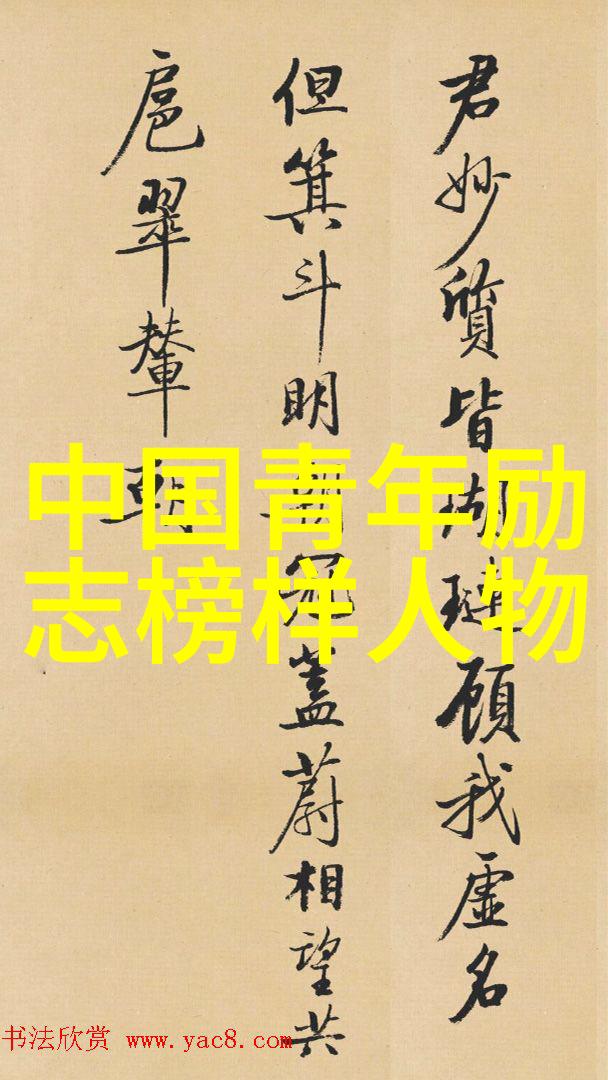 君妙質皆瑚璉顧我虛名
但箕斗明朝冠蓋蔚相望共
扈翠輦朝
中国青年励
志榜样人物
书法欣赏 www.yac8.com